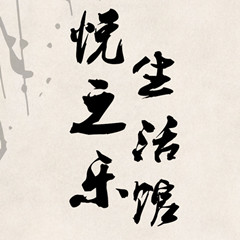 悦之乐
生活馆